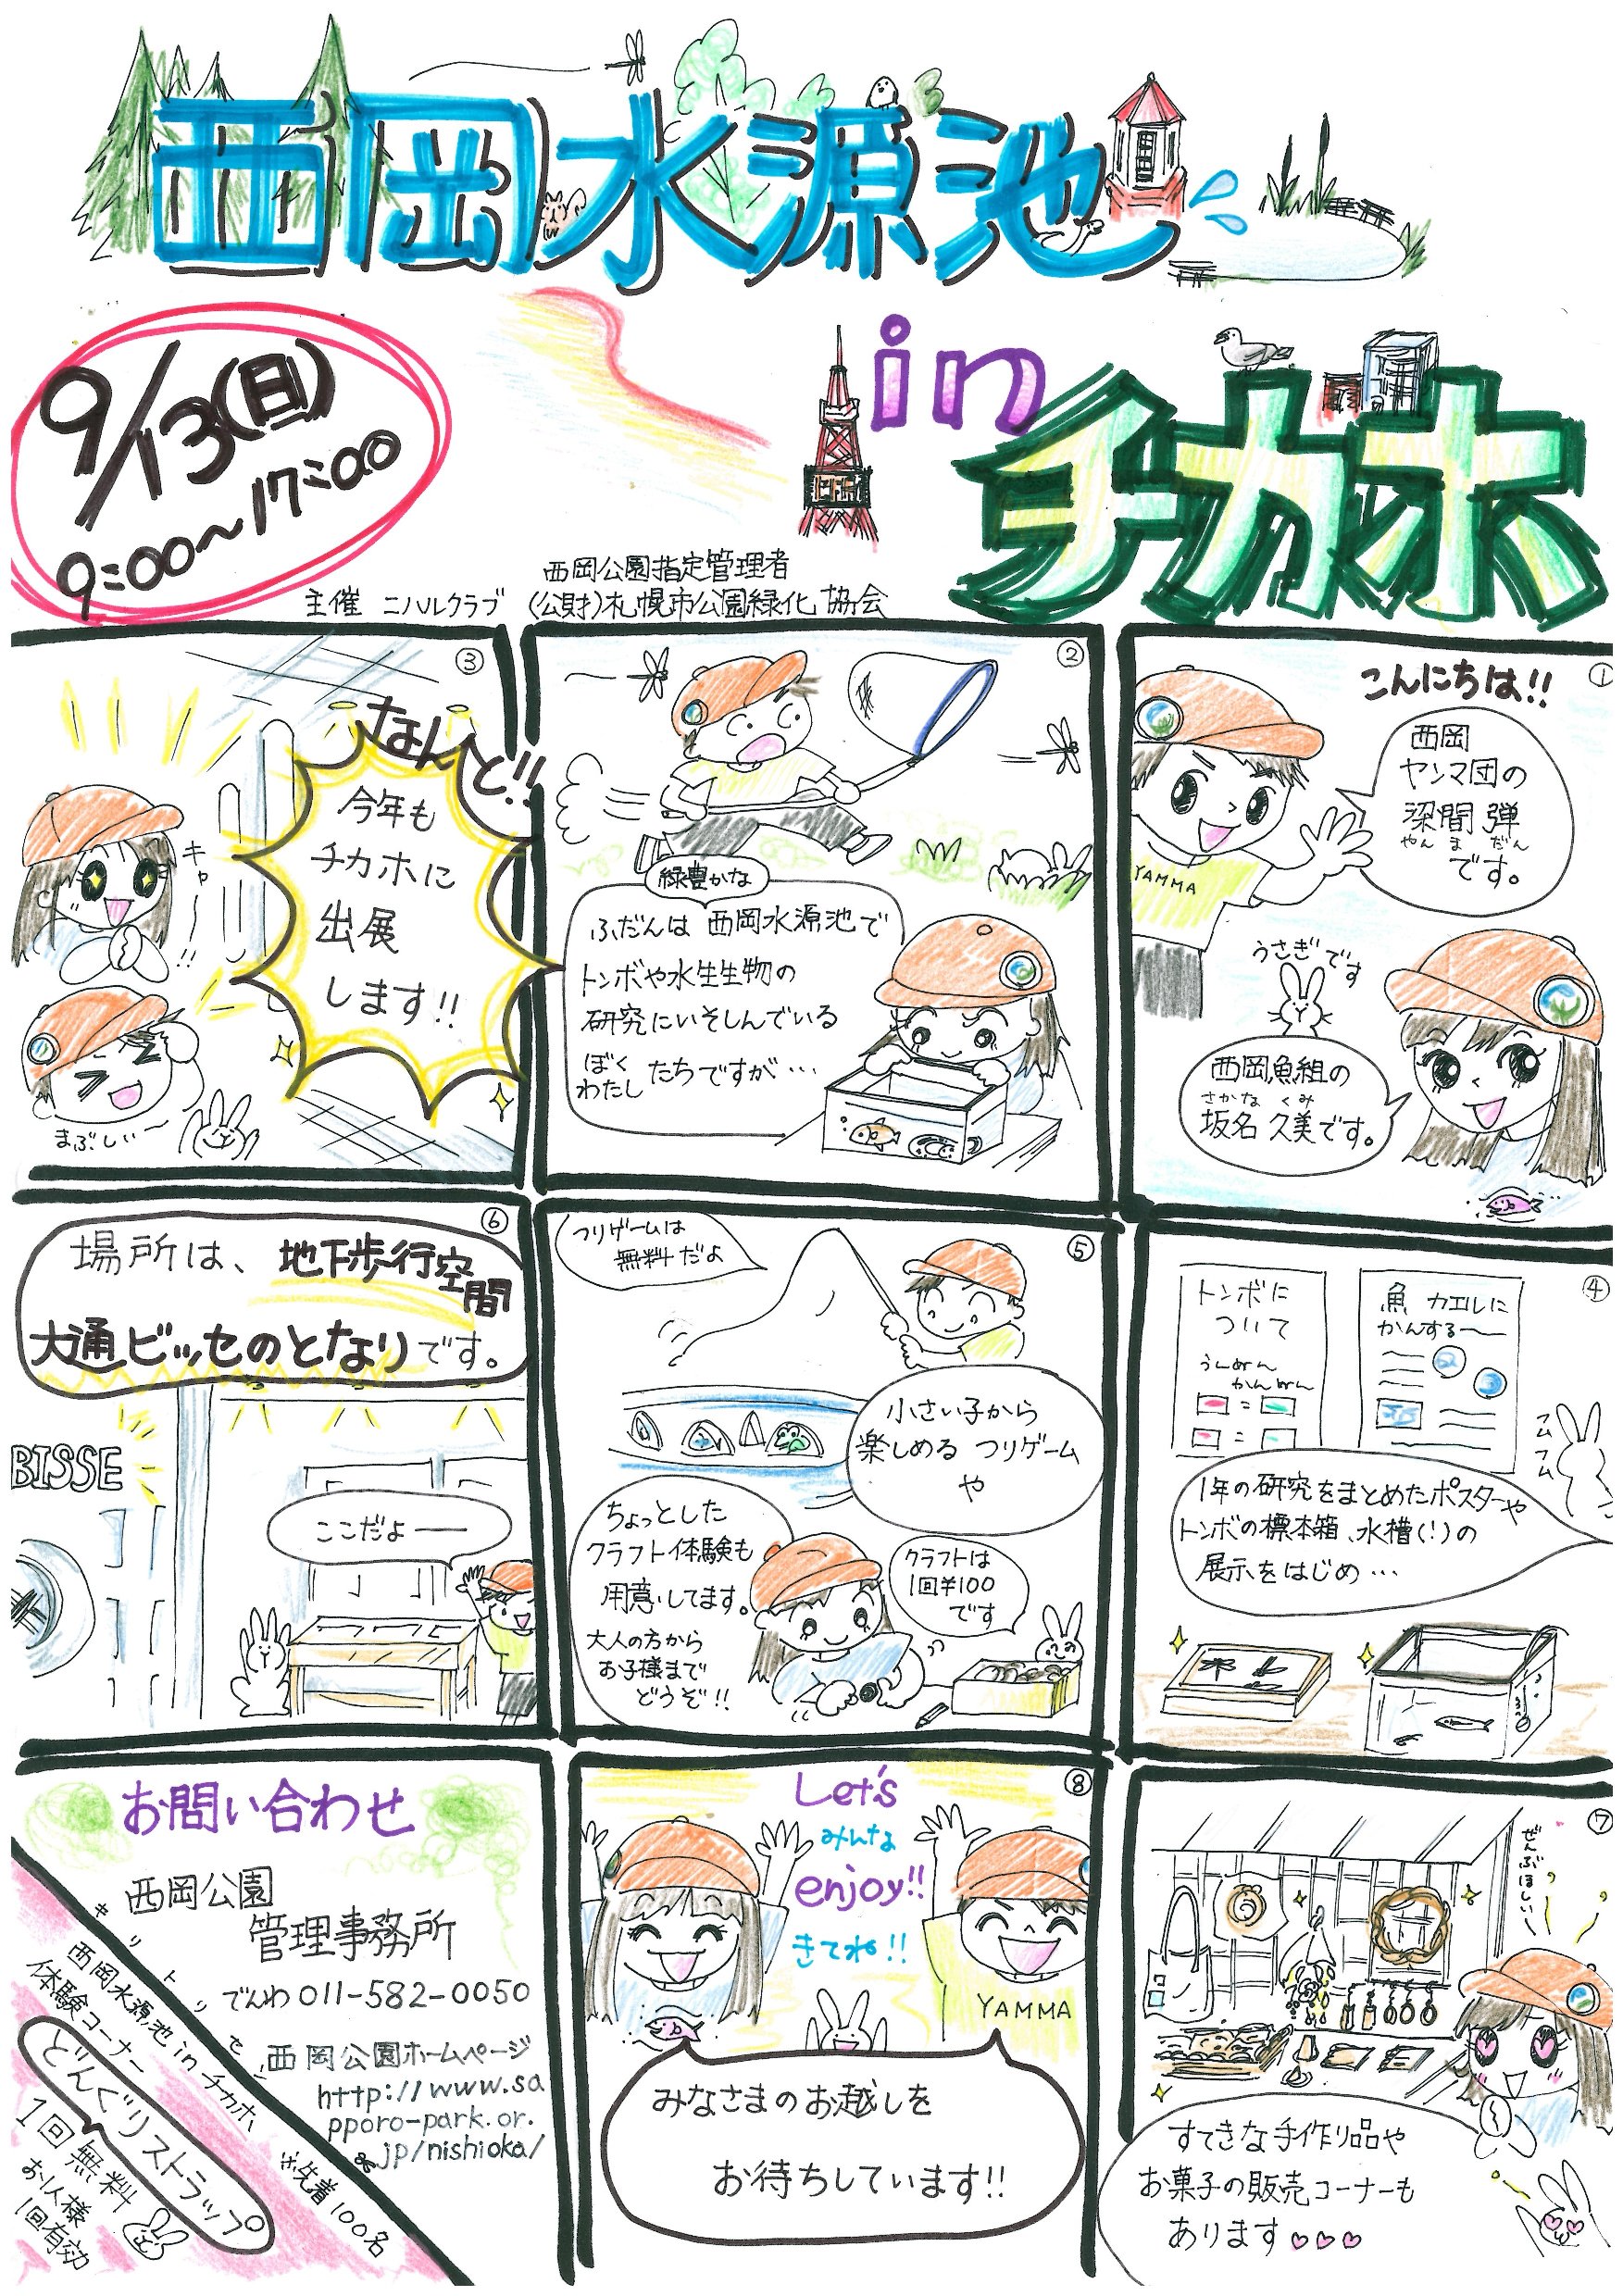 西岡水源池
in
チカホ
9/13(日)
9:00〜17:00
西岡公園指定管理者
主催 ニハルクラブ (公財)札幌市公園緑化協会
①
こんにちは!!
西岡
ヤンマ団の
深間 弾
やん ま だん
です。
YAMMA
うさぎです
西岡魚組の
さかな くみ
坂名 久美です。
②
緑豊かな
ふだんは 西岡水源池で
トンボや水生生物の
研究にいそしんでいる
ぼく
わたし
たちですが…
③
なんと!!
今年も
チカホに
出展
します!!
キャーー!!
まぶしぃ〜
④
トンボに
ついて
魚 カエルに
かんする〜
フムフム
1年の研究をまとめたポスターや
トンボの標本箱、水槽(!)の
展示をはじめ…
⑤
つりゲームは
無料だよ
小さい子から
楽しめる つりゲーム
や
ちょっとした
クラフト体験も
用意してます。
大人の方から
お子様まで
どうぞ!!
クラフトは
1回¥100
です
⑥
場所は、地下歩行空間
大通ビッセのとなりです。
BISSE
ここだよ──
⑦
ぜんぶほしい〜
すてきな手作り品や
お菓子の販売コーナーも
あります♡♡♡
⑧
Let's
みんな
enjoy!!
きてね!!
YAMMA
みなさまのお越しを
お待ちしています!!
お問い合わせ
西岡公園
管理事務所
でんわ 011-582-0050
西岡公園ホームページ
http://www.sa
pporo-park.or.
jp/nishioka/
キリトリセン
西岡水源池inチカホ
体験コーナー
どんぐりストラップ
1回無料
お1人様
1回有効
※先着100名